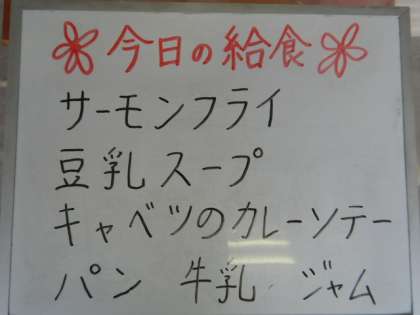 今日の給食
サーモンフライ
豆乳スープ
キャベツのカレーソテー
パン 牛乳 ジャム